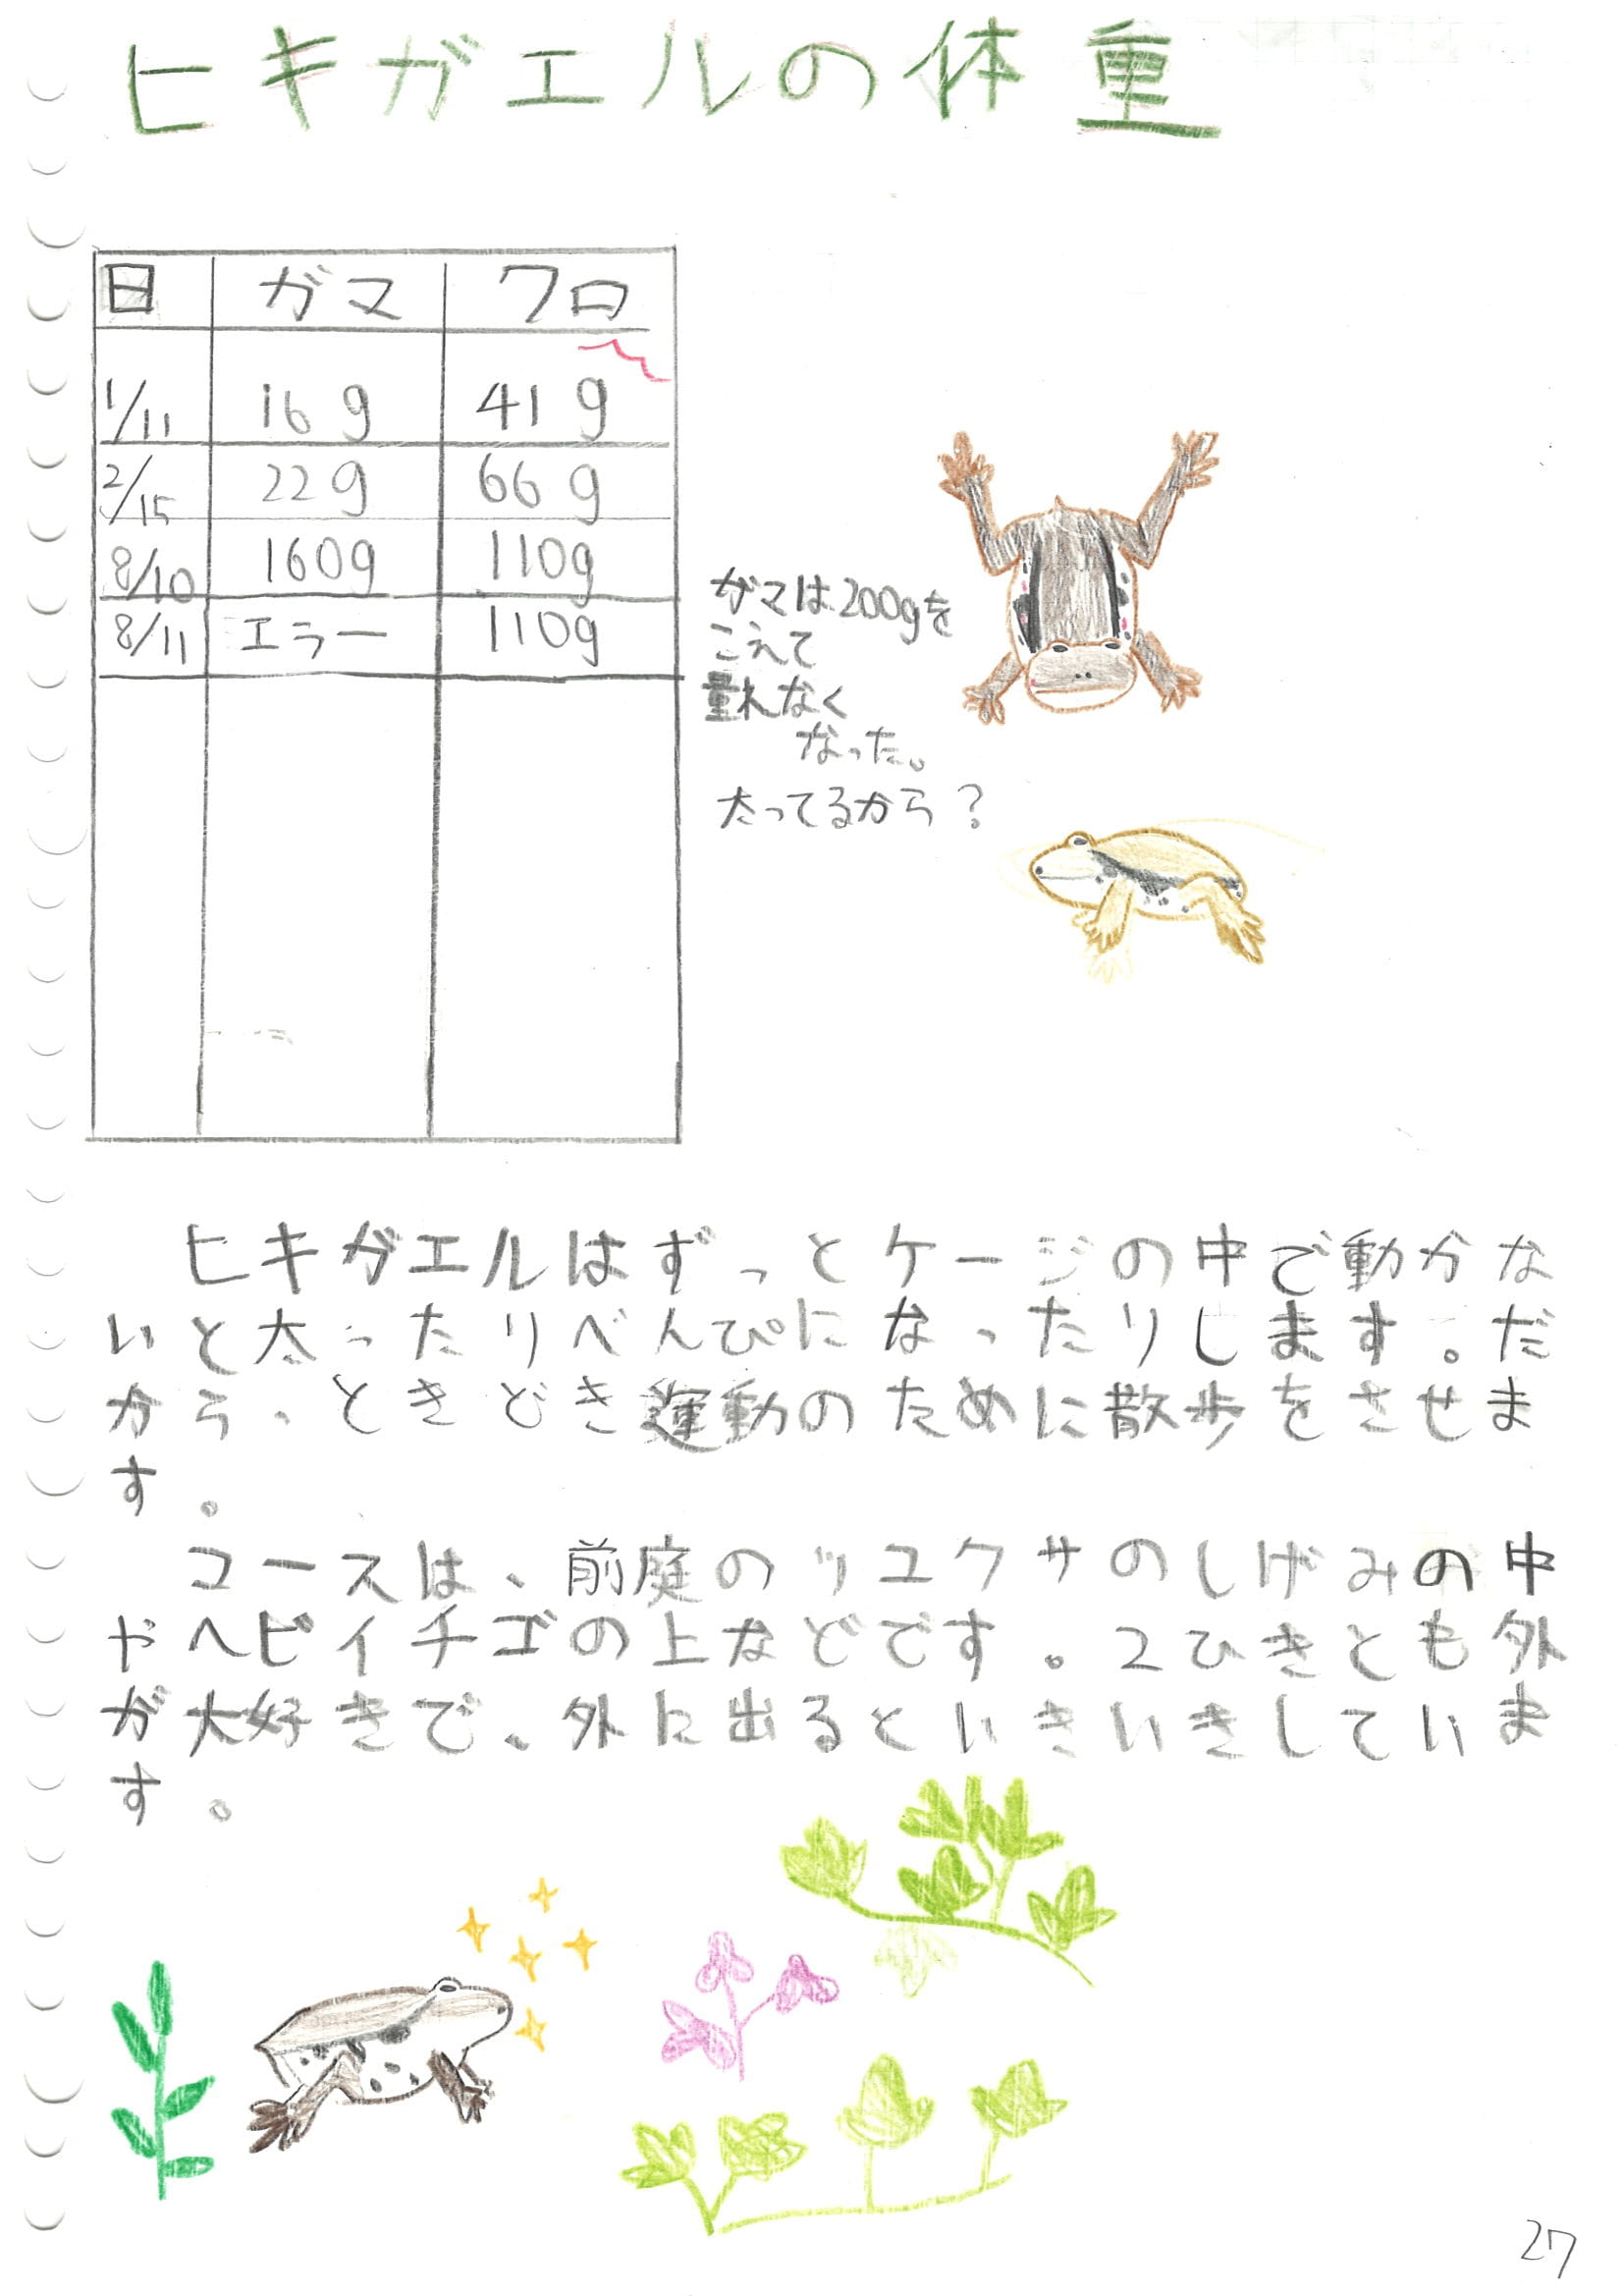 ヒキガエルの体重
日 ガマ クロ
1/11 16g 41g
2/15 22g 66g
8/10 160g 110g
8/11 エラー 110g
ガマは200gを
こえて
量れなく
なった。
太ってるから?
ヒキガエルはずっとケージの中で動かな
いと太ったりべんぴになったりします。だ
から、ときどき運動のために散歩をさせま
す。
コースは、前庭のツユクサのしげみの中
やヘビイチゴの上などです。2ひきとも外
が大好きで、外に出るといきいきしていま
す。
27